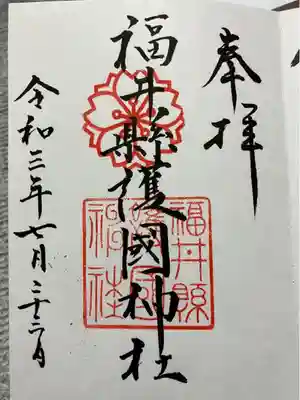 奉拝
福井縣護國神社
令和三年七月二十二日
福井縣
護國
神社